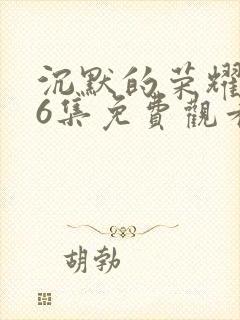 沉默的荣耀
6集免費觀看
胡勃